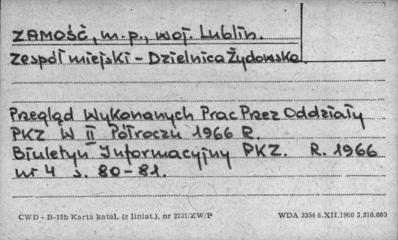 ZAMOŚĆ, m.p., woj. Lublin.
Zespół miejski - Dzielnica Żydowska.
Przegląd Wykonanych Prac Przez Oddziały
PKZ W II Półroczu 1966 R.
Biuletyn Informacyjny PKZ. R. 1966
nr 4 s. 80-81.
CWD - B-15b Karta katal. (z liniat.), nr 2731/ZW/P WDA 3334 6.XII.1960 3.310.000